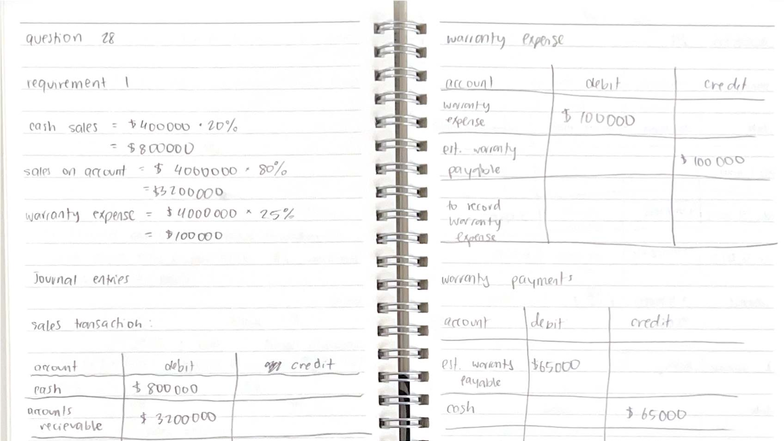 question 28
requirement 1
cash sales = $400000 · 20%
= $800000
sales on account = $ 4000000 · 80%
= $3200000
warranty expense = $4000000 * 25%
= $100000
Journal entries
sales transaction :
account debit credit
cash $ 800000
accounts recievable $ 3200000
warranty expense
account debit credit
warranty
expense $ 100000
est. warranty
payable $ 100000
to record
warranty
expense
warranty payments
account debit credit
est. warranty
payable $65000
cash $ 65000